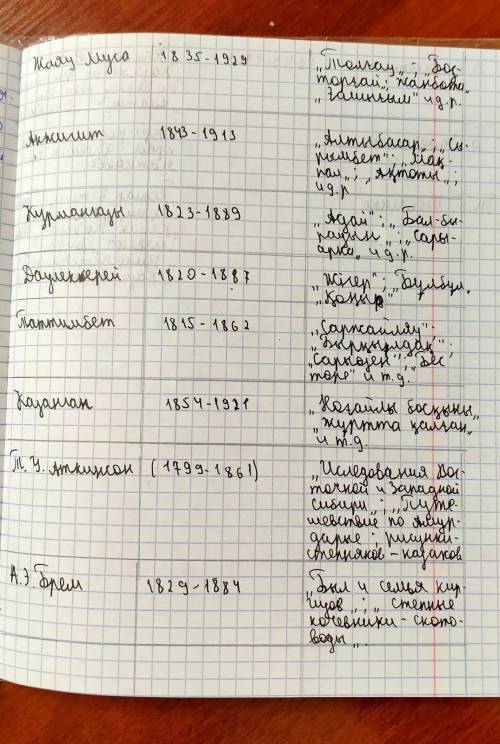 Жаяу Муса 1835-1929 „Толғау„; „Бос-
торғай; жанбота„
„Ғалиның" и д.р.
Аккигит 1843-1913 „Алтыбасар„; „Сы-
рымбет"; „Мақ-
пал„; „Ақтоты„;
и д.р
Курмангазы 1823-1889 „Адай"; „Бал-бы-
рауын„; „Сары-
арка„ и д.р.
Даулеткерей 1820-1887 „Жігер"; „Бұлбұл„
„Қоңыр"
Таттимбет 1815-1862 „Саржайляу"
„Бырқылдақ";
„Сарыөзен"; „Бес
төре" и т.д.
Казанган 1854-1921 „Ноғайлы босқыны„
„журтта қалған"
и т.д.
Т. У. Аткинсон (1799-1861) „Иследования Вос-
точной и Западной
сибири„; „Путе-
шевствие по Аму-
дарье; рисунки-
степняков-казаков
А.Э.Брем 1829-1884 „Был и семья кир-
гизов„; „степные
кочевники-ското-
воды„.